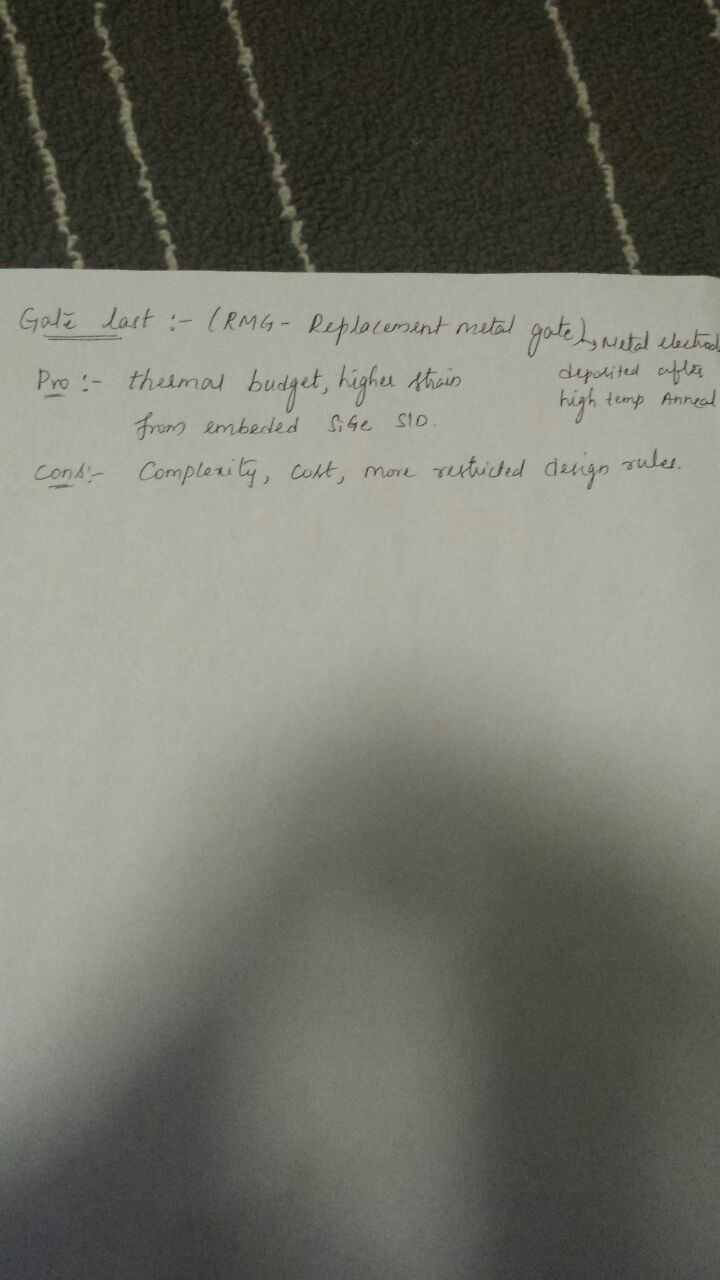 Gate last :- (RMG - Replacement metal gate)
↳ Metal electrod
deposited after
high temp Anneal
Pro :- thermal budget, higher strain
from embeded SiGe S/D.
Cons:- Complexity, cost, more restricted design rules.